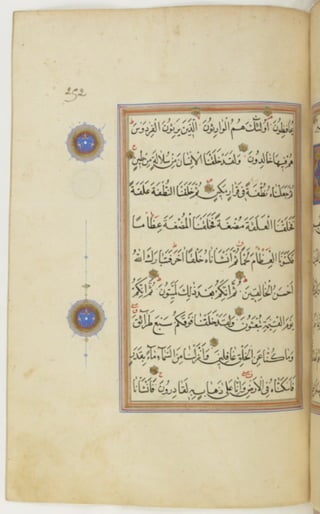 يحافظون أولئك هم الوارثون الذين يرثون الفردوس
هم فيها خالدون ولقد خلقنا الإنسان من سلالة من طين
ثم جعلناه نطفة في قرار مكين ثم خلقنا النطفة علقة
فخلقنا العلقة مضغة فخلقنا المضغة عظاما
فكسونا العظام لحما ثم أنشأناه خلقا آخر فتبارك الله
أحسن الخالقين ثم إنكم بعد ذلك لميتون ثم إنكم
يوم القيمة تبعثون ولقد خلقنا فوقكم سبع طرائق
وما كنا عن الخلق غافلين وأنزلنا من السماء ماء بقدر
فأسكناه في الأرض وإنا على ذهاب به لقادرون فأنشأنا